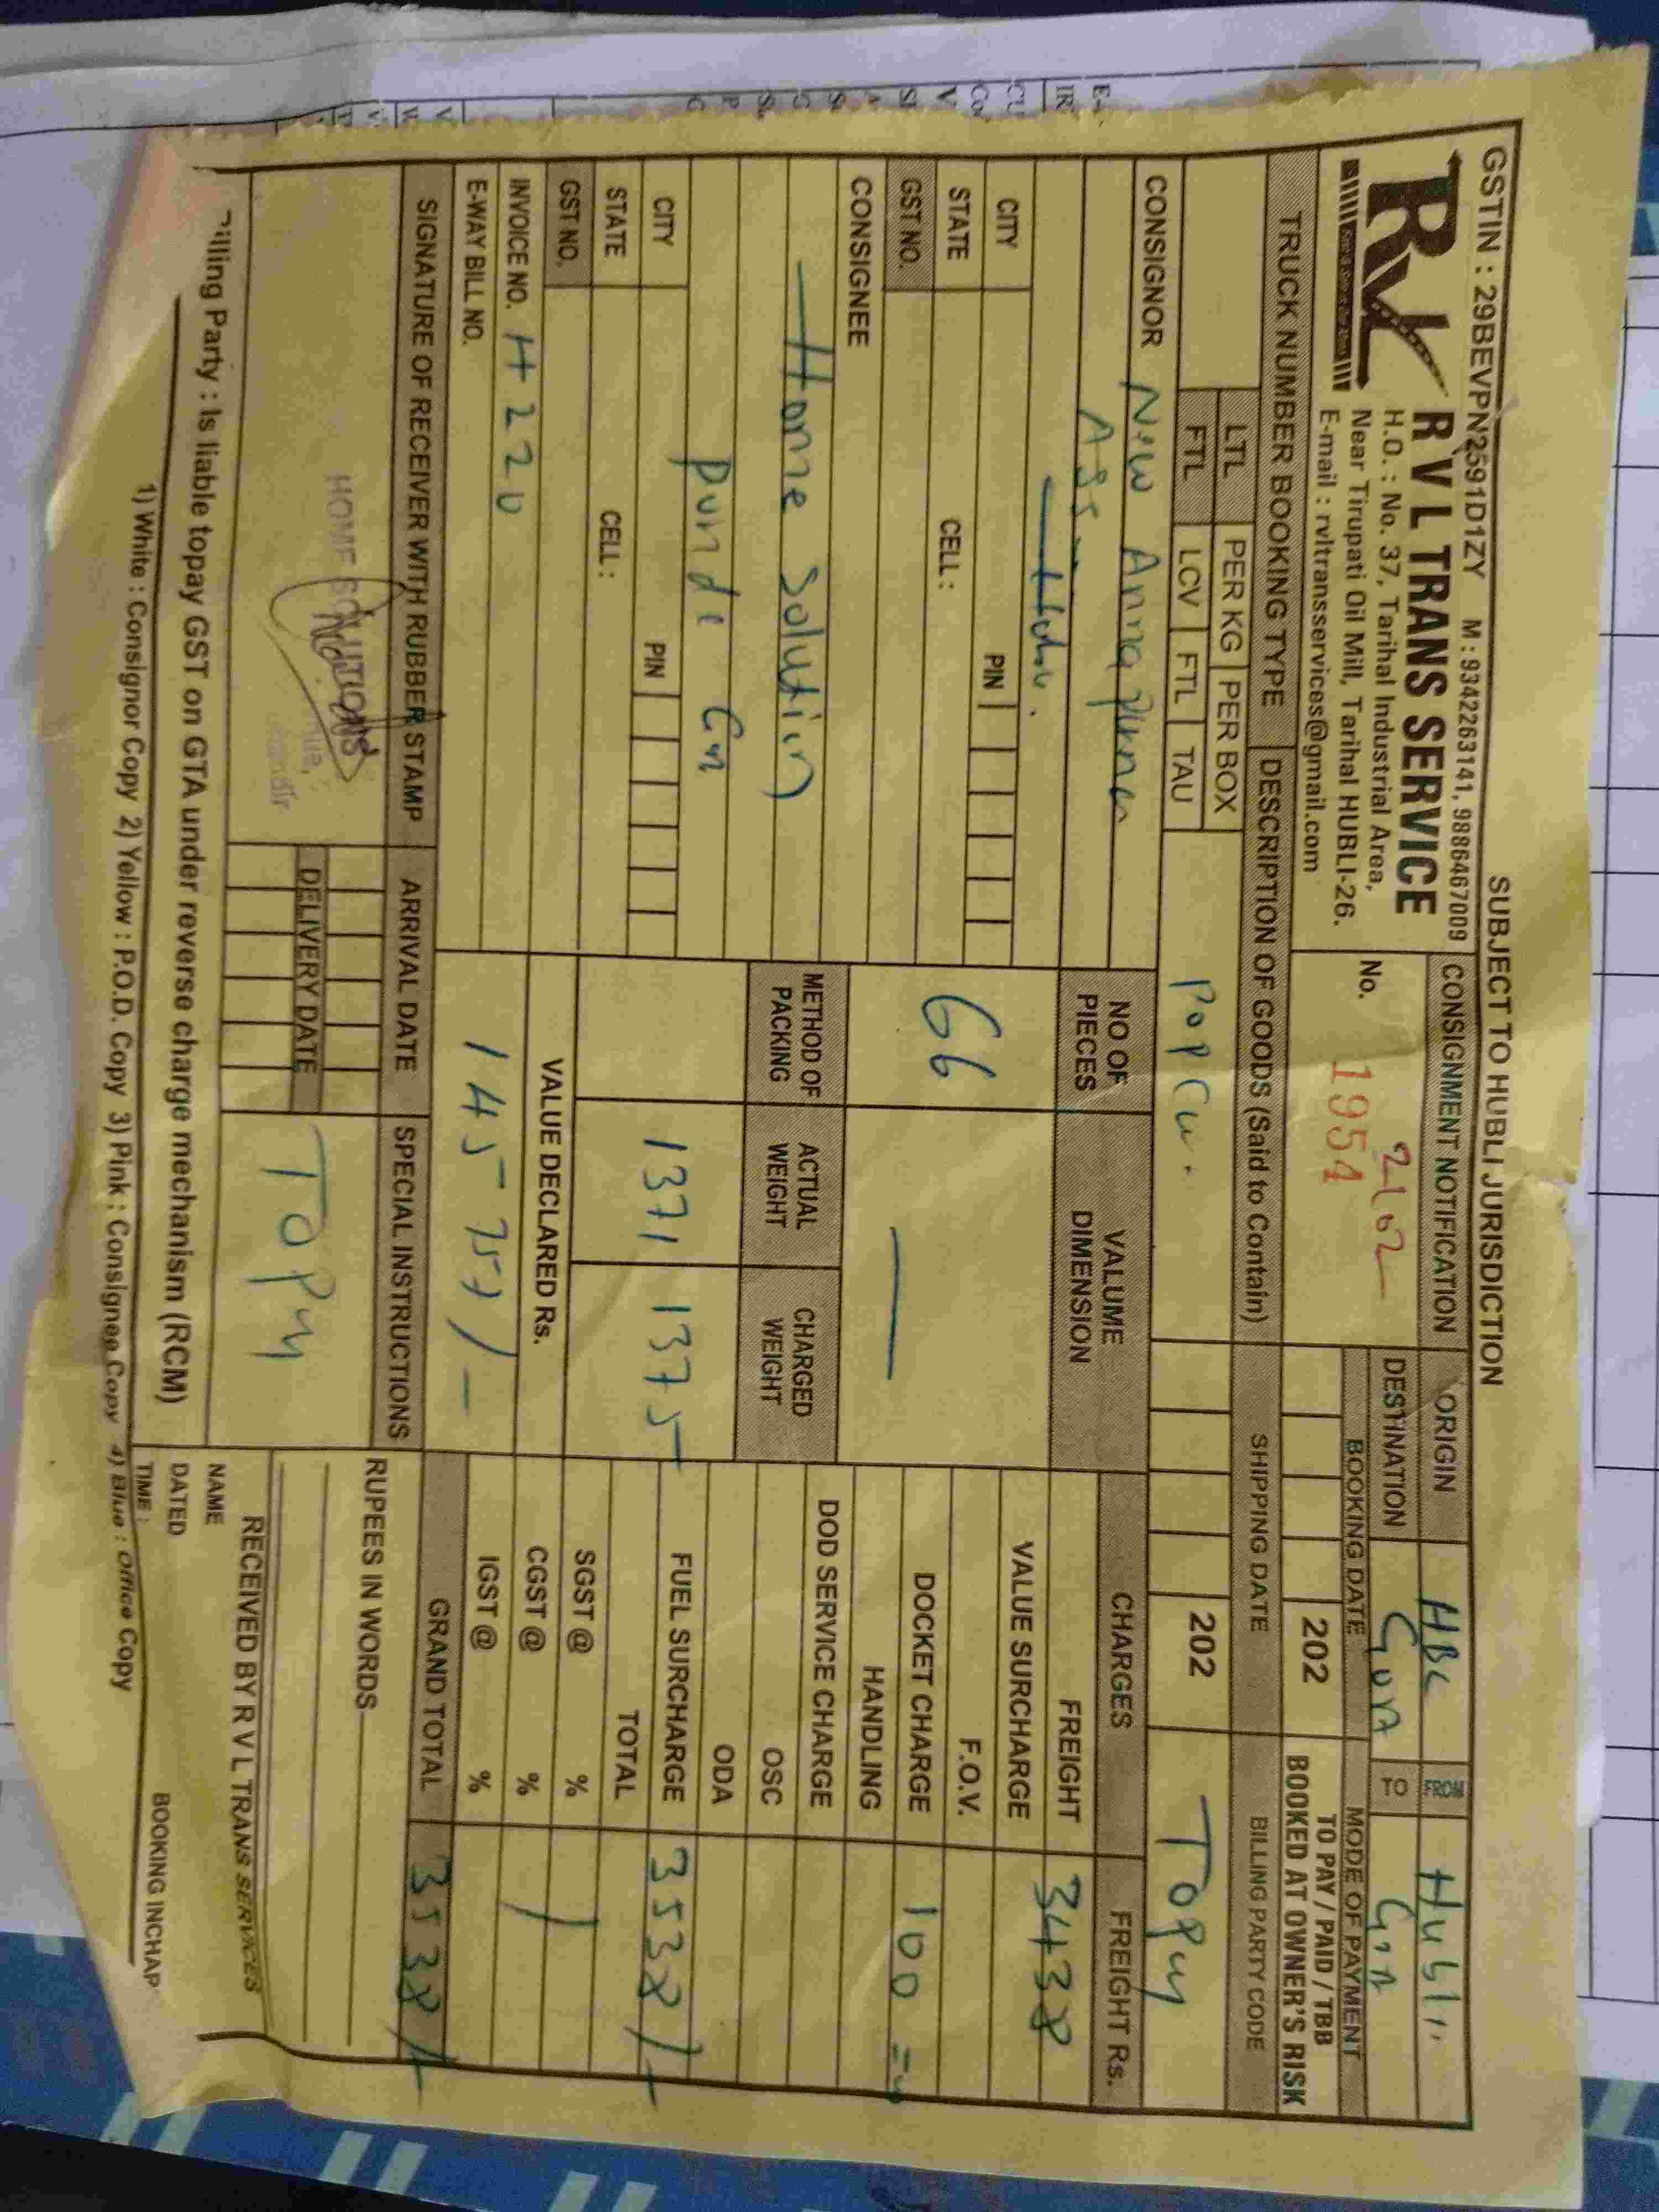 SUBJECT TO HUBLI JURISDICTION
GSTIN : 29BEVPN2591D1ZY M : 9342263141, 9886467009
RVL
R V L TRANS SERVICE
H.O. : No. 37, Tarihal Industrial Area,
Near Tirupati Oil Mill, Tarihal HUBLI-26.
E-mail : rvltransservices@gmail.com
CONSIGNMENT NOTIFICATION
2102
No. 1954
ORIGIN HBL FROM Hubli
DESTINATION Goa TO Goa
BOOKING DATE MODE OF PAYMENT
202 TO PAY / PAID / TBB
BOOKED AT OWNER'S RISK
TRUCK NUMBER BOOKING TYPE DESCRIPTION OF GOODS (Said to Contain) SHIPPING DATE BILLING PARTY CODE
LTL PER KG PER BOX
FTL LCV FTL TAU
202 Topay
CONSIGNOR New Annapurna
NO OF PIECES VALUME DIMENSION CHARGES FREIGHT Rs.
66
FREIGHT 3438
VALUE SURCHARGE
CITY PIN
STATE CELL :
F.O.V.
GST NO.
DOCKET CHARGE 100
HANDLING
CONSIGNEE
Home Solution
METHOD OF PACKING ACTUAL WEIGHT CHARGED WEIGHT
1371 1375
DOD SERVICE CHARGE
OSC
ODA
CITY PIN
STATE CELL :
FUEL SURCHARGE 3538/-
TOTAL
GST NO.
VALUE DECLARED Rs.
SGST @ %
INVOICE NO. H 2220
CGST @ %
E-WAY BILL NO.
145757/-
IGST @ %
SIGNATURE OF RECEIVER WITH RUBBER STAMP ARRIVAL DATE SPECIAL INSTRUCTIONS GRAND TOTAL 3538/-
HOME SOLUTIONS
DELIVERY DATE
Topay
RUPEES IN WORDS
RECEIVED BY R V L TRANS SERVICES
Billing Party : Is liable topay GST on GTA under reverse charge mechanism (RCM)
NAME
DATED
TIME :
BOOKING INCHAP
1) White : Consignor Copy 2) Yellow : P.O.D. Copy 3) Pink : Consignee Copy 4) Blue : Office Copy